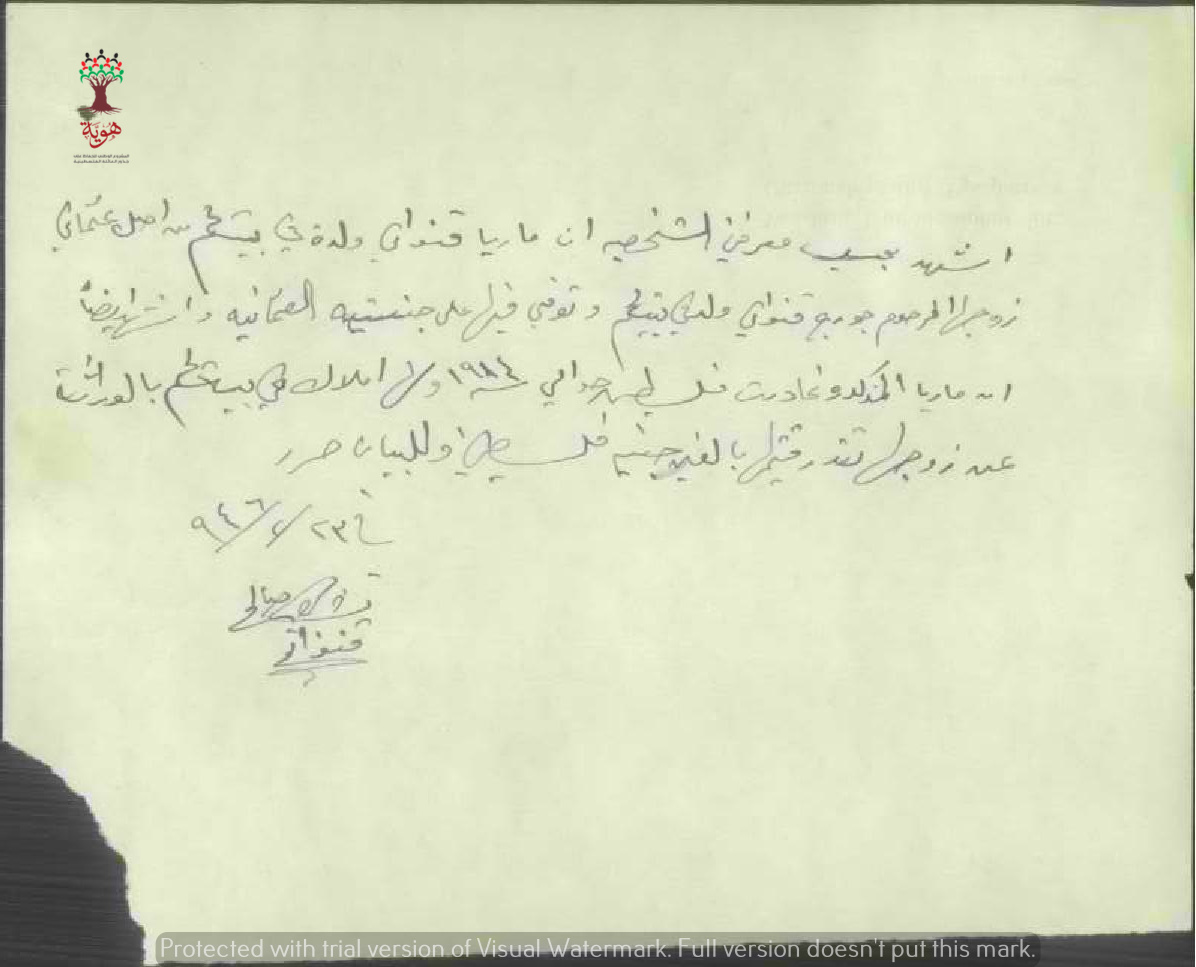 هوية
اشهد بحسب معرفتي الشخصيه ان ماريا قنواتي ولدة في بيتلحم من اصل عثماني
زوجها المرحوم جورج قنواتي ولد في بيتلحم وتوفي فيها على جنستيه العثمانيه واشهد ايضاً
ان ماريا المذكوره غادرت فلسطين حوالي سنة ١٩١٤ ولها املاك في بيتلحم بالوراثة
عن زوجها تقدر قيمتها بالفين جنيه فلسطيني وللبيان حرر
في ٢٣/٧/٩٤٦
صالح
قنواتي
Protected with trial version of Visual Watermark. Full version doesn't put this mark.